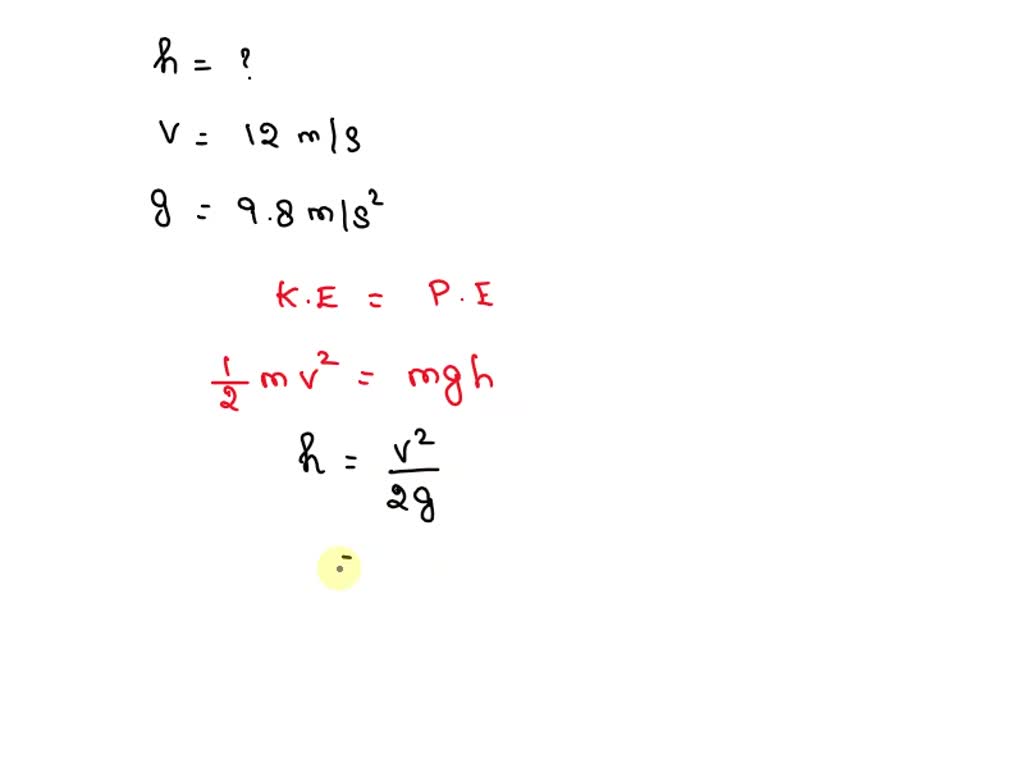 h = ?
v = 12 m/s
g = 9.8 m/s²
K.E = P.E
1/2 mv² = mgh
h = v²/2g